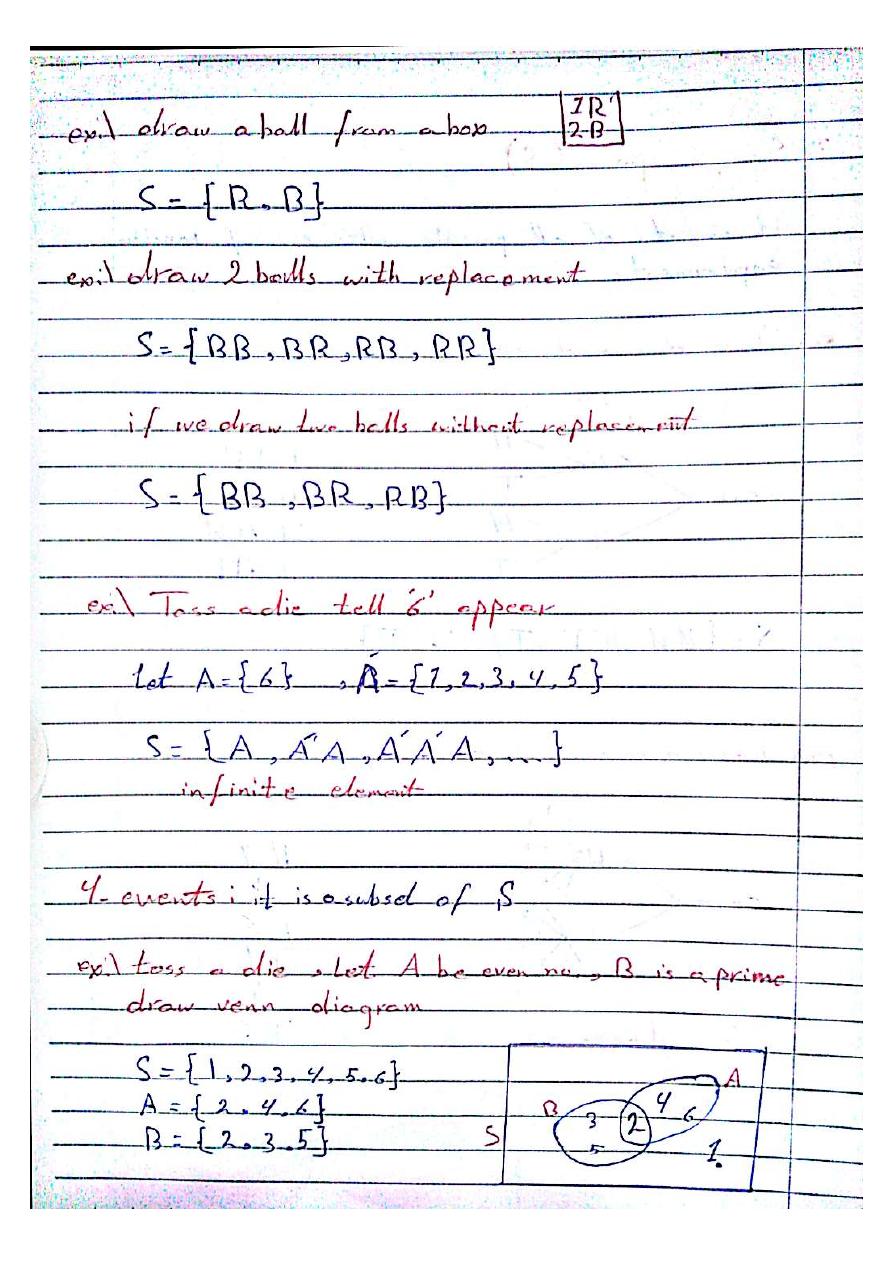 ex:\ draw a ball from a box
1R
2-B
S = { R, B }
ex:\ draw 2 balls with replacement
S = { BB , BR , RB , RR }
if we draw two balls without replacement
S = { BB , BR , RB }
ex:\ Toss a die tell '6' appear
let A = { 6 } , A' = { 1, 2, 3, 4, 5 }
S = { A , A'A , A'A'A , .... }
infinite element
4- events : it is a subset of S
ex:\ toss a die , Let A be even no , B is a prime
draw venn diagram
S = { 1, 2, 3, 4, 5, 6 }
A = { 2, 4, 6 }
B = { 2, 3, 5 }
S
B
A
3
5
2
4
6
1.